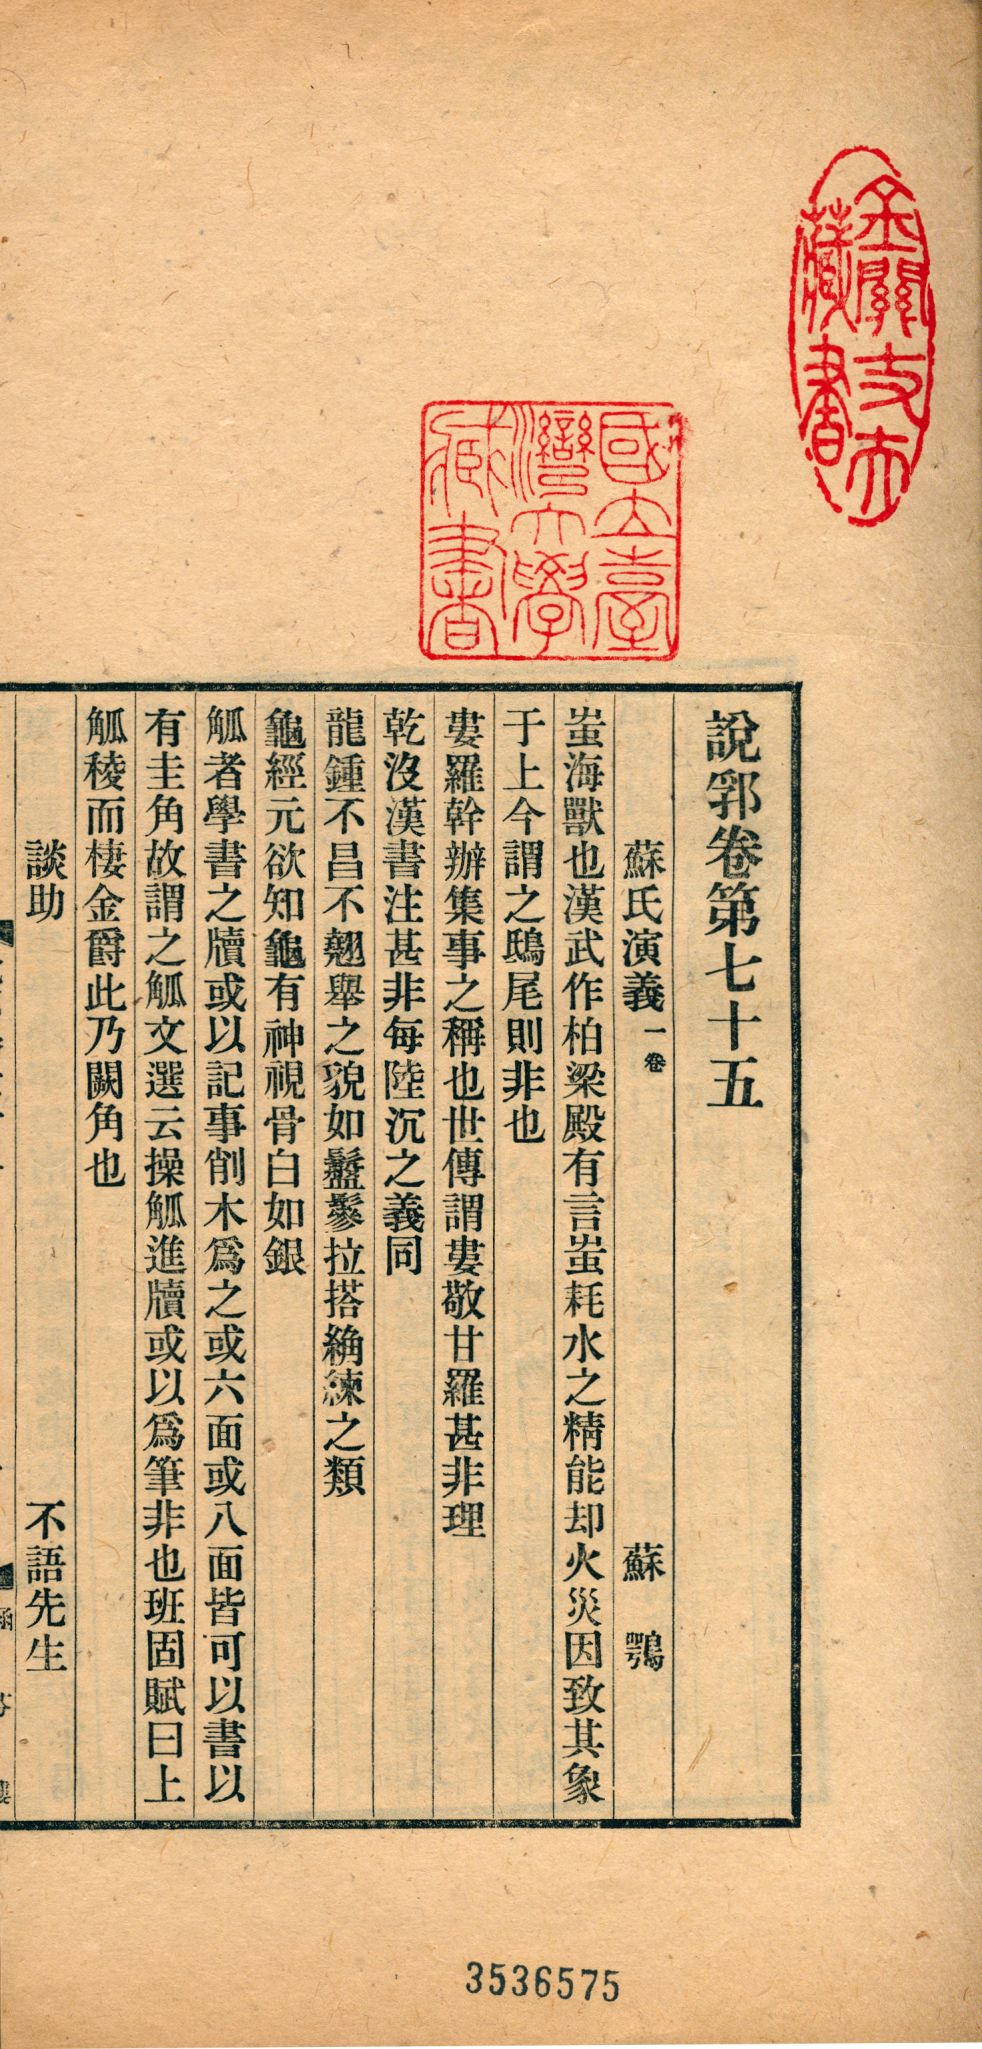 說郛卷第七十五
蘇氏演義一卷 蘇鶚
蚩海獸也漢武作柏梁殿有言蚩耗水之精能却火災因致其象
于上今謂之鴟尾則非也
婁羅幹辦集事之稱也世傳謂婁敬甘羅甚非理
乾沒漢書注甚非每陸沉之義同
龍鍾不昌不翹舉之貌如鬖拉搭之類
龜經元欲知龜有神視骨白如銀
觚者學書之牘或以記事削木爲之或六面或八面皆可以書以
有圭角故謂之觚文選云操觚進牘或以爲筆非也班固賦曰上
觚稜而棲金爵此乃闕角也
談助 不語先生
國立臺灣大學藏書
藏書
3536575